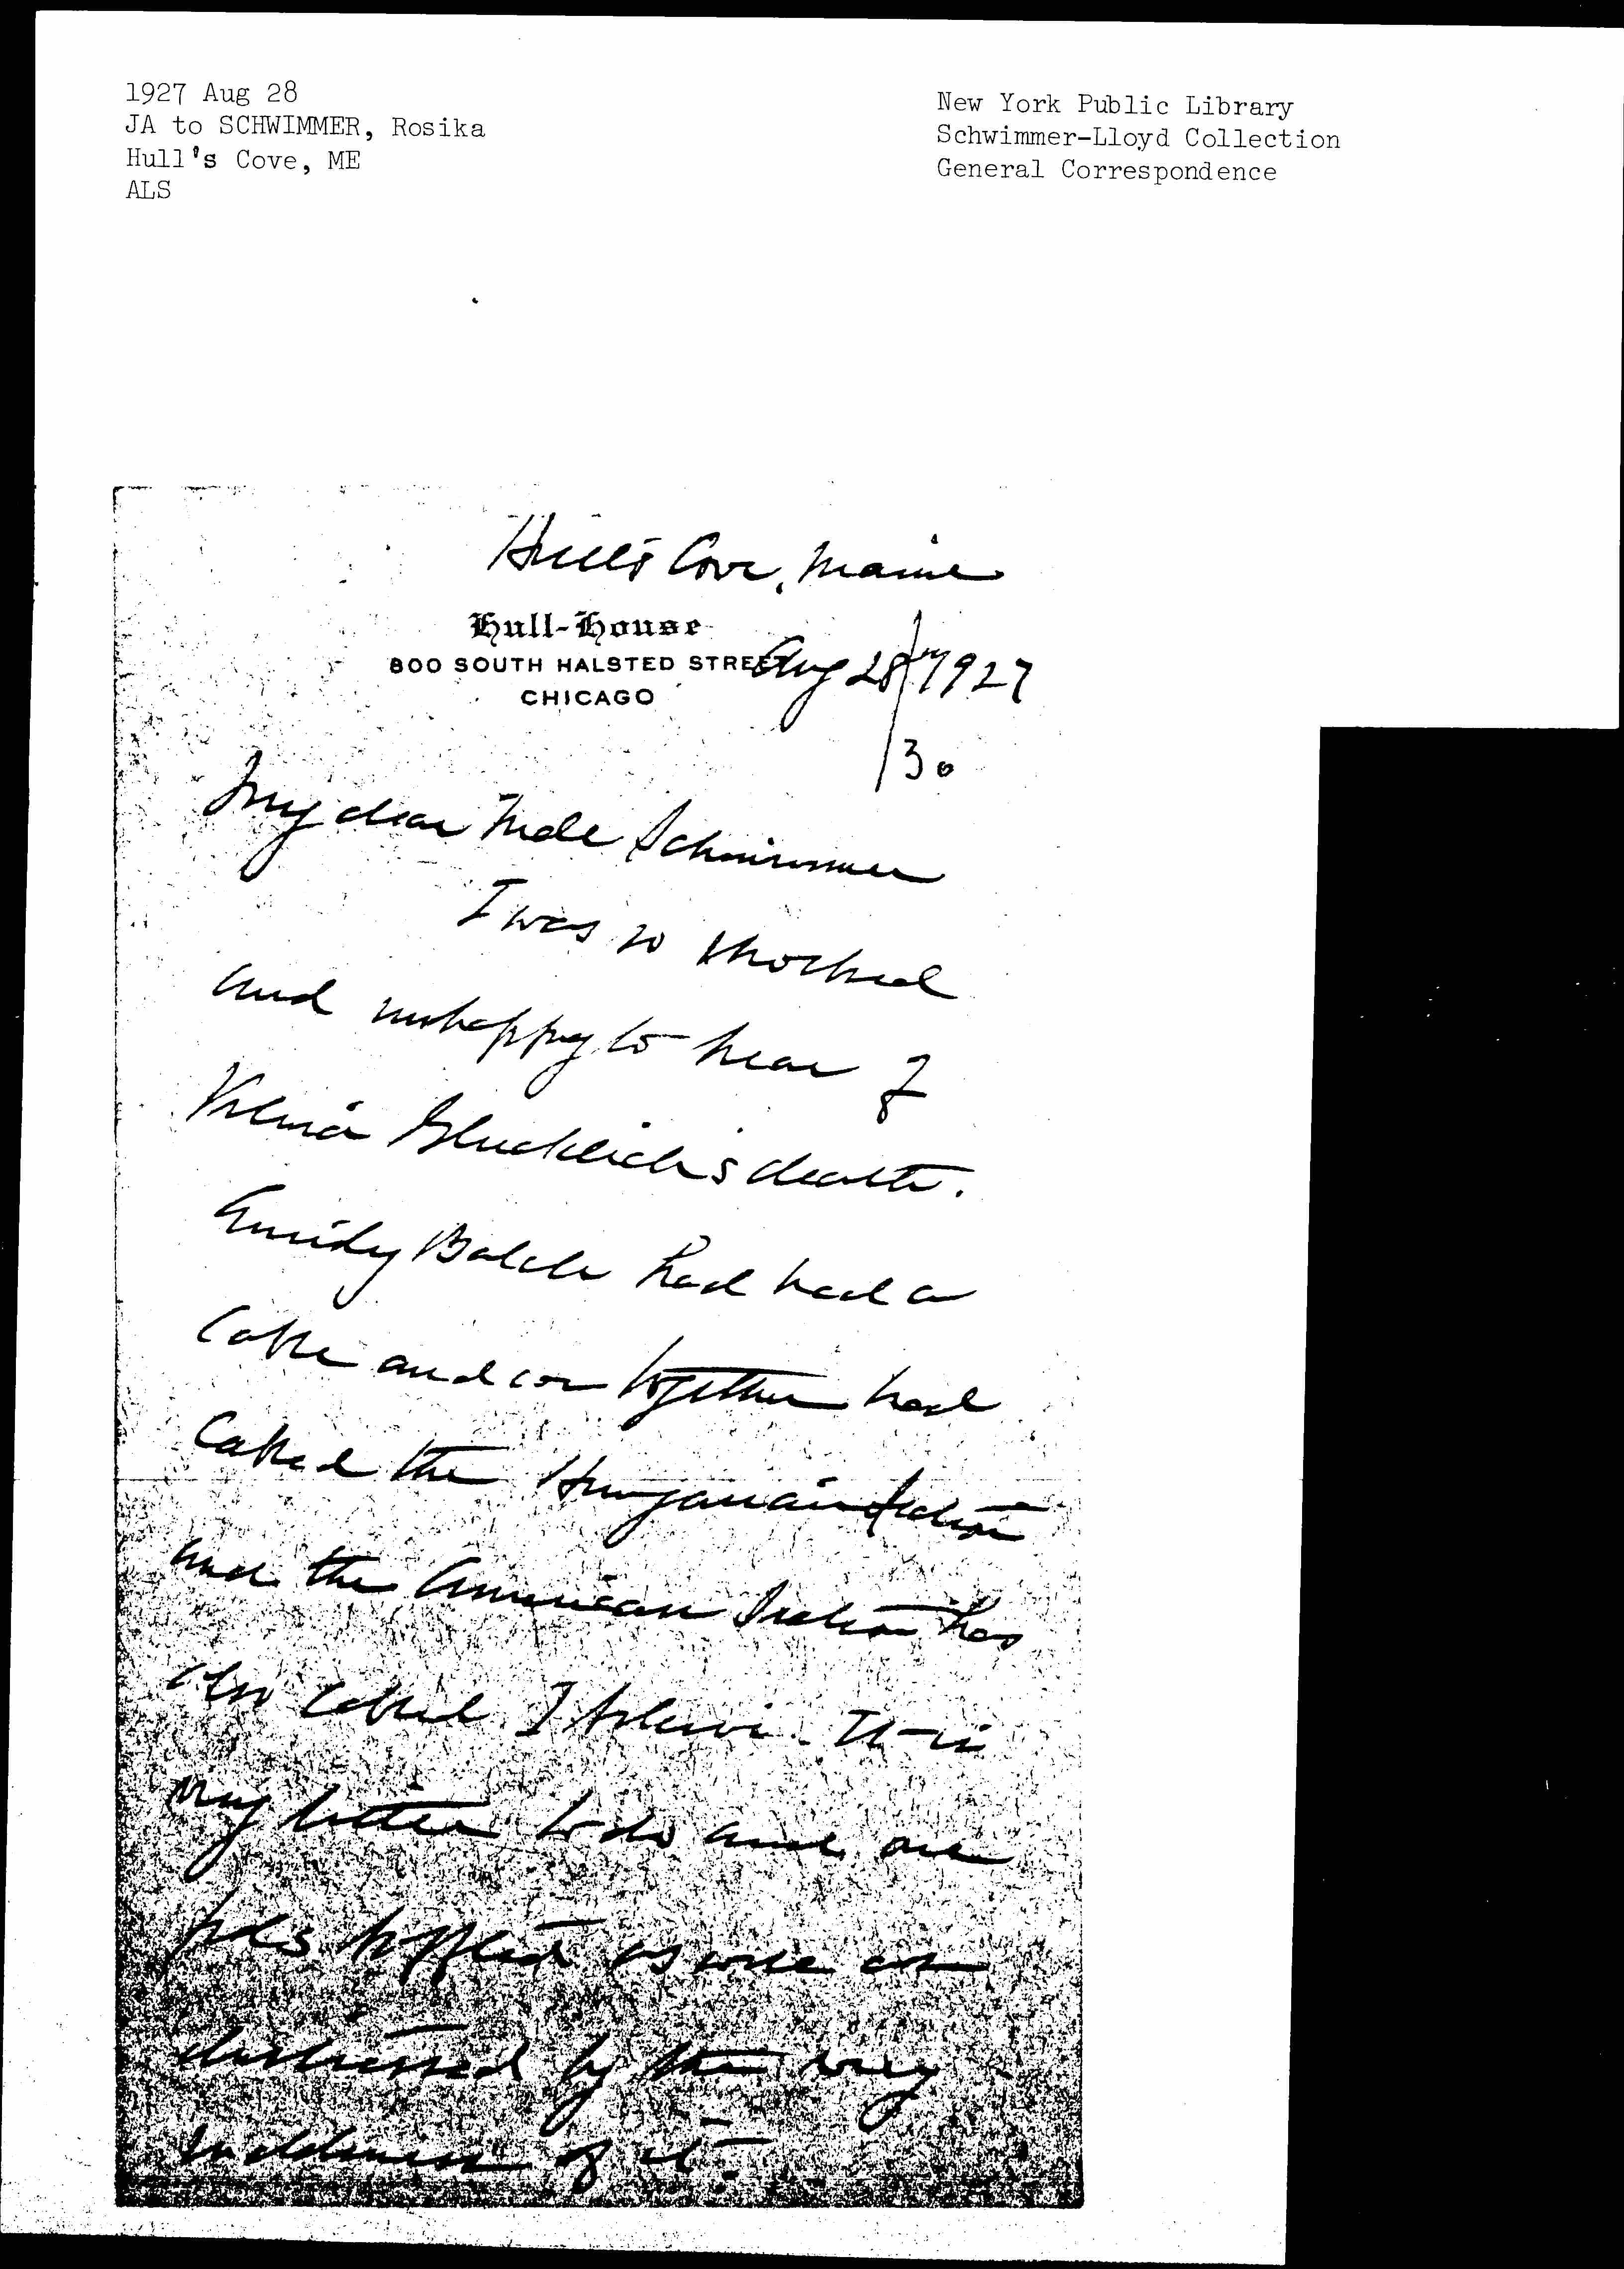 1927 Aug 28
JA to SCHWIMMER, Rosika
Hull's Cove, ME
ALS
New York Public Library
Schwimmer-Lloyd Collection
General Correspondence
Hull's Cove, Maine
Hull-House
800 SOUTH HALSTED STREET
CHICAGO
Aug 28" 1927
/30
My dear Mde Schwimmer
I was so shocked
and unhappy to hear of
Vilma Glucklich's death.
Emily Balch had had a
cable and we together had
cabled the Hungarian Section
and the American Section has
also cabled I believe. It is
very bitter to do and one
feels baffled as well as
distressed by the very
suddenness of it.